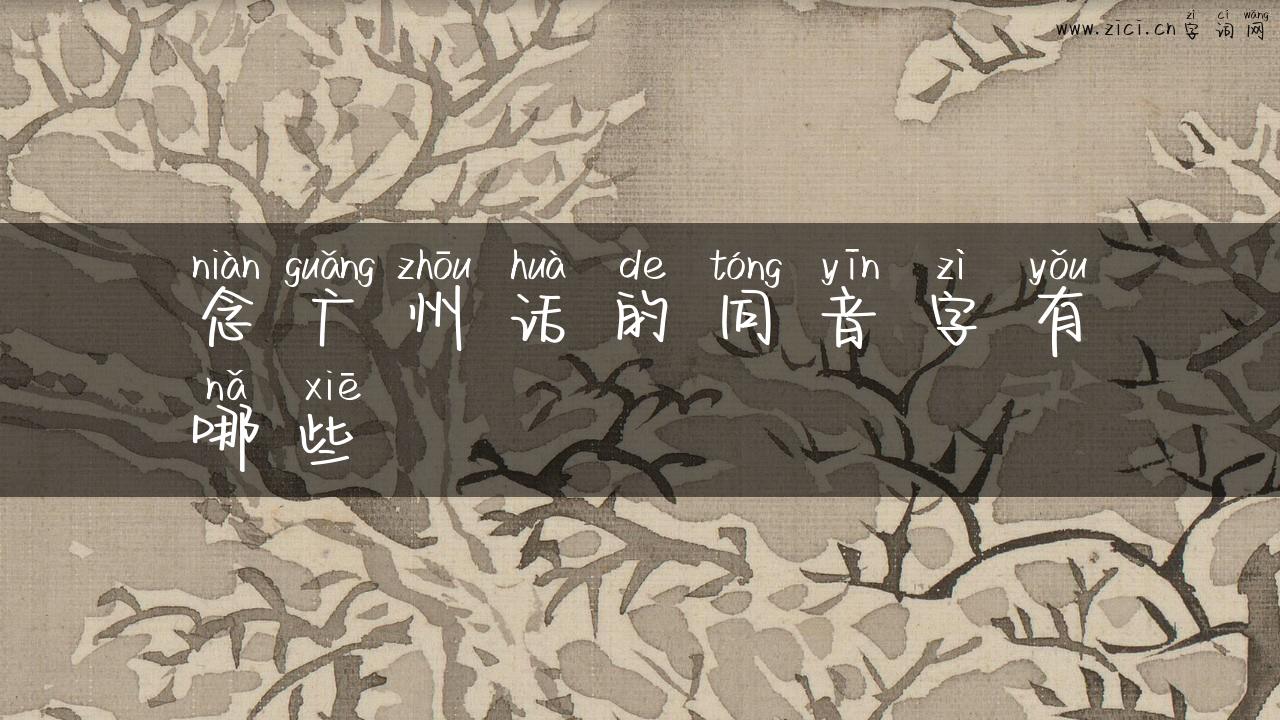 zì cí wǎng
www.zici.cn 字 词 网
niàn guǎng zhōu huà de tóng yīn zì yǒu
念 广 州 话 的 同 音 字 有
nǎ xiē
哪 些